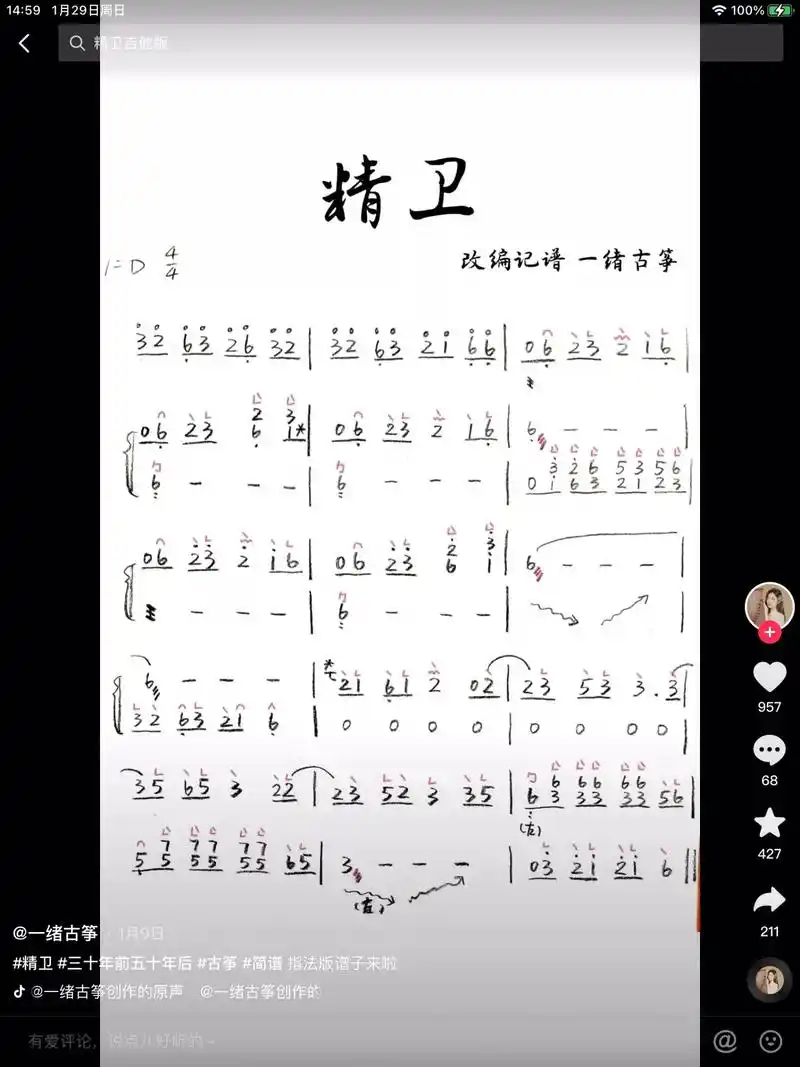 14:59 1月29日周日 100%
精卫吉他版
精卫
1=D 4/4
改编记谱 一绪古筝
32 63 26 32 | 32 63 21 66 | 06 23 2 16 |
06 23 2 6 3 1* | 06 23 2 16 | 6 - - -
6 - - - | 6 - - - | 0 3 1 2 6 6 3 5 2 3 1 5 2 6 3
06 23 2 16 | 06 23 2 6 3 1 | 6 - - -
- - - | 6 - - - |
6 - - - | 21 61 2 02 | 23 53 3. 3
32 63 21 6 | 0 0 0 0 | 0 0 0 0
35 65 3 22 | 23 52 3 35 | 6 6 3 6 3 6 3 6 3 6 3 56
(左)
5 7 5 7 5 7 5 7 5 7 5 65 | 3 - - - | 03 21 21 6
(左)
957
68
427
211
@一绪古筝 · 1月9日
#精卫 #三十年前五十年后 #古筝 #简谱 指法版谱子来啦
@一绪古筝创作的原声 @一绪古筝创作的
有爱评论，说点儿好听的~